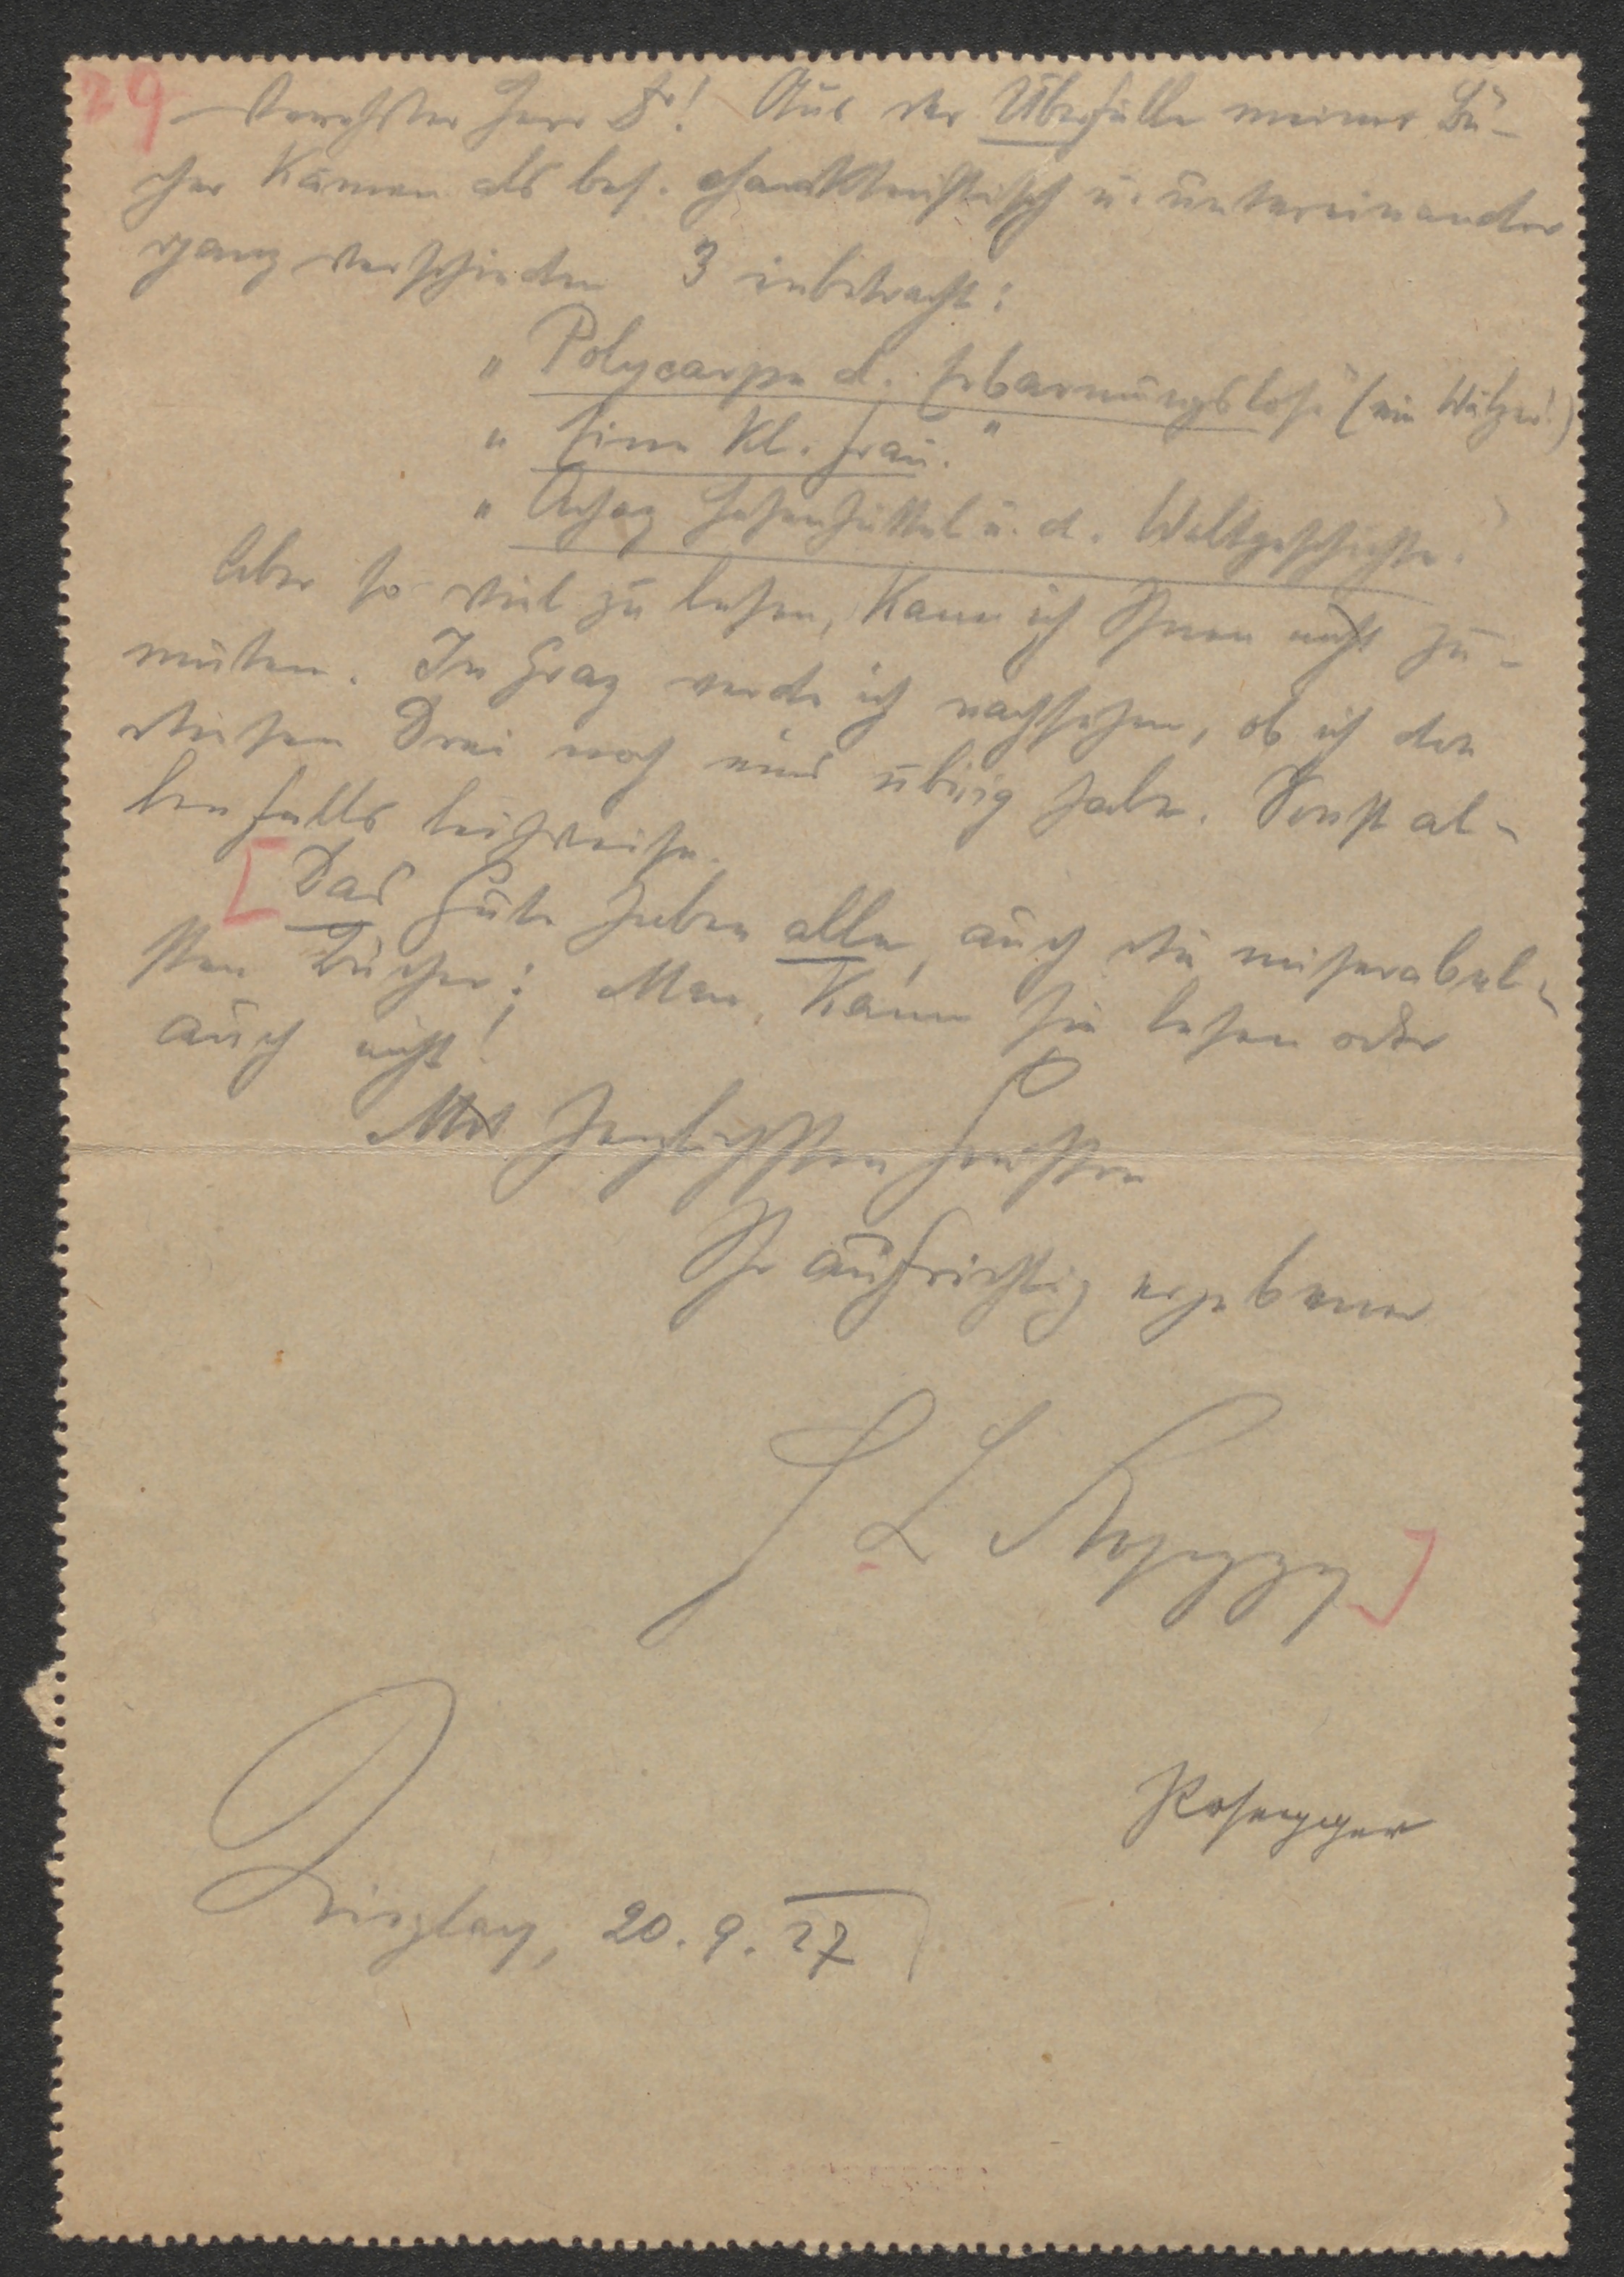 29
Verehrter Herr Dr! Aus der Überfülle meiner Bü-
cher kämen als bes. charakteristisch u. untereinander
ganz verschieden 3 inbetracht:
„Polycarpe d. Erbarmungslose" (ein Wälzer!)
„Eine kl. Frau."
„Achaz Hohenhüttel u. d. Weltgeschichte.
Aber so viel zu lesen, kann ich Ihnen nicht zu-
muten. In Graz werde ich nachsehen, ob ich von
diesen Drei noch eins übrig habe. Sonst al-
lenfalls leihweise.
[Das Gute haben alle, auch die miserabel-
sten Bücher: Man kann sie lesen oder
auch nicht!
Mit herzlichsten Grüssen
Ihr aufrichtig ergebener
Rosegger]
Rosegger
20. 9. 27